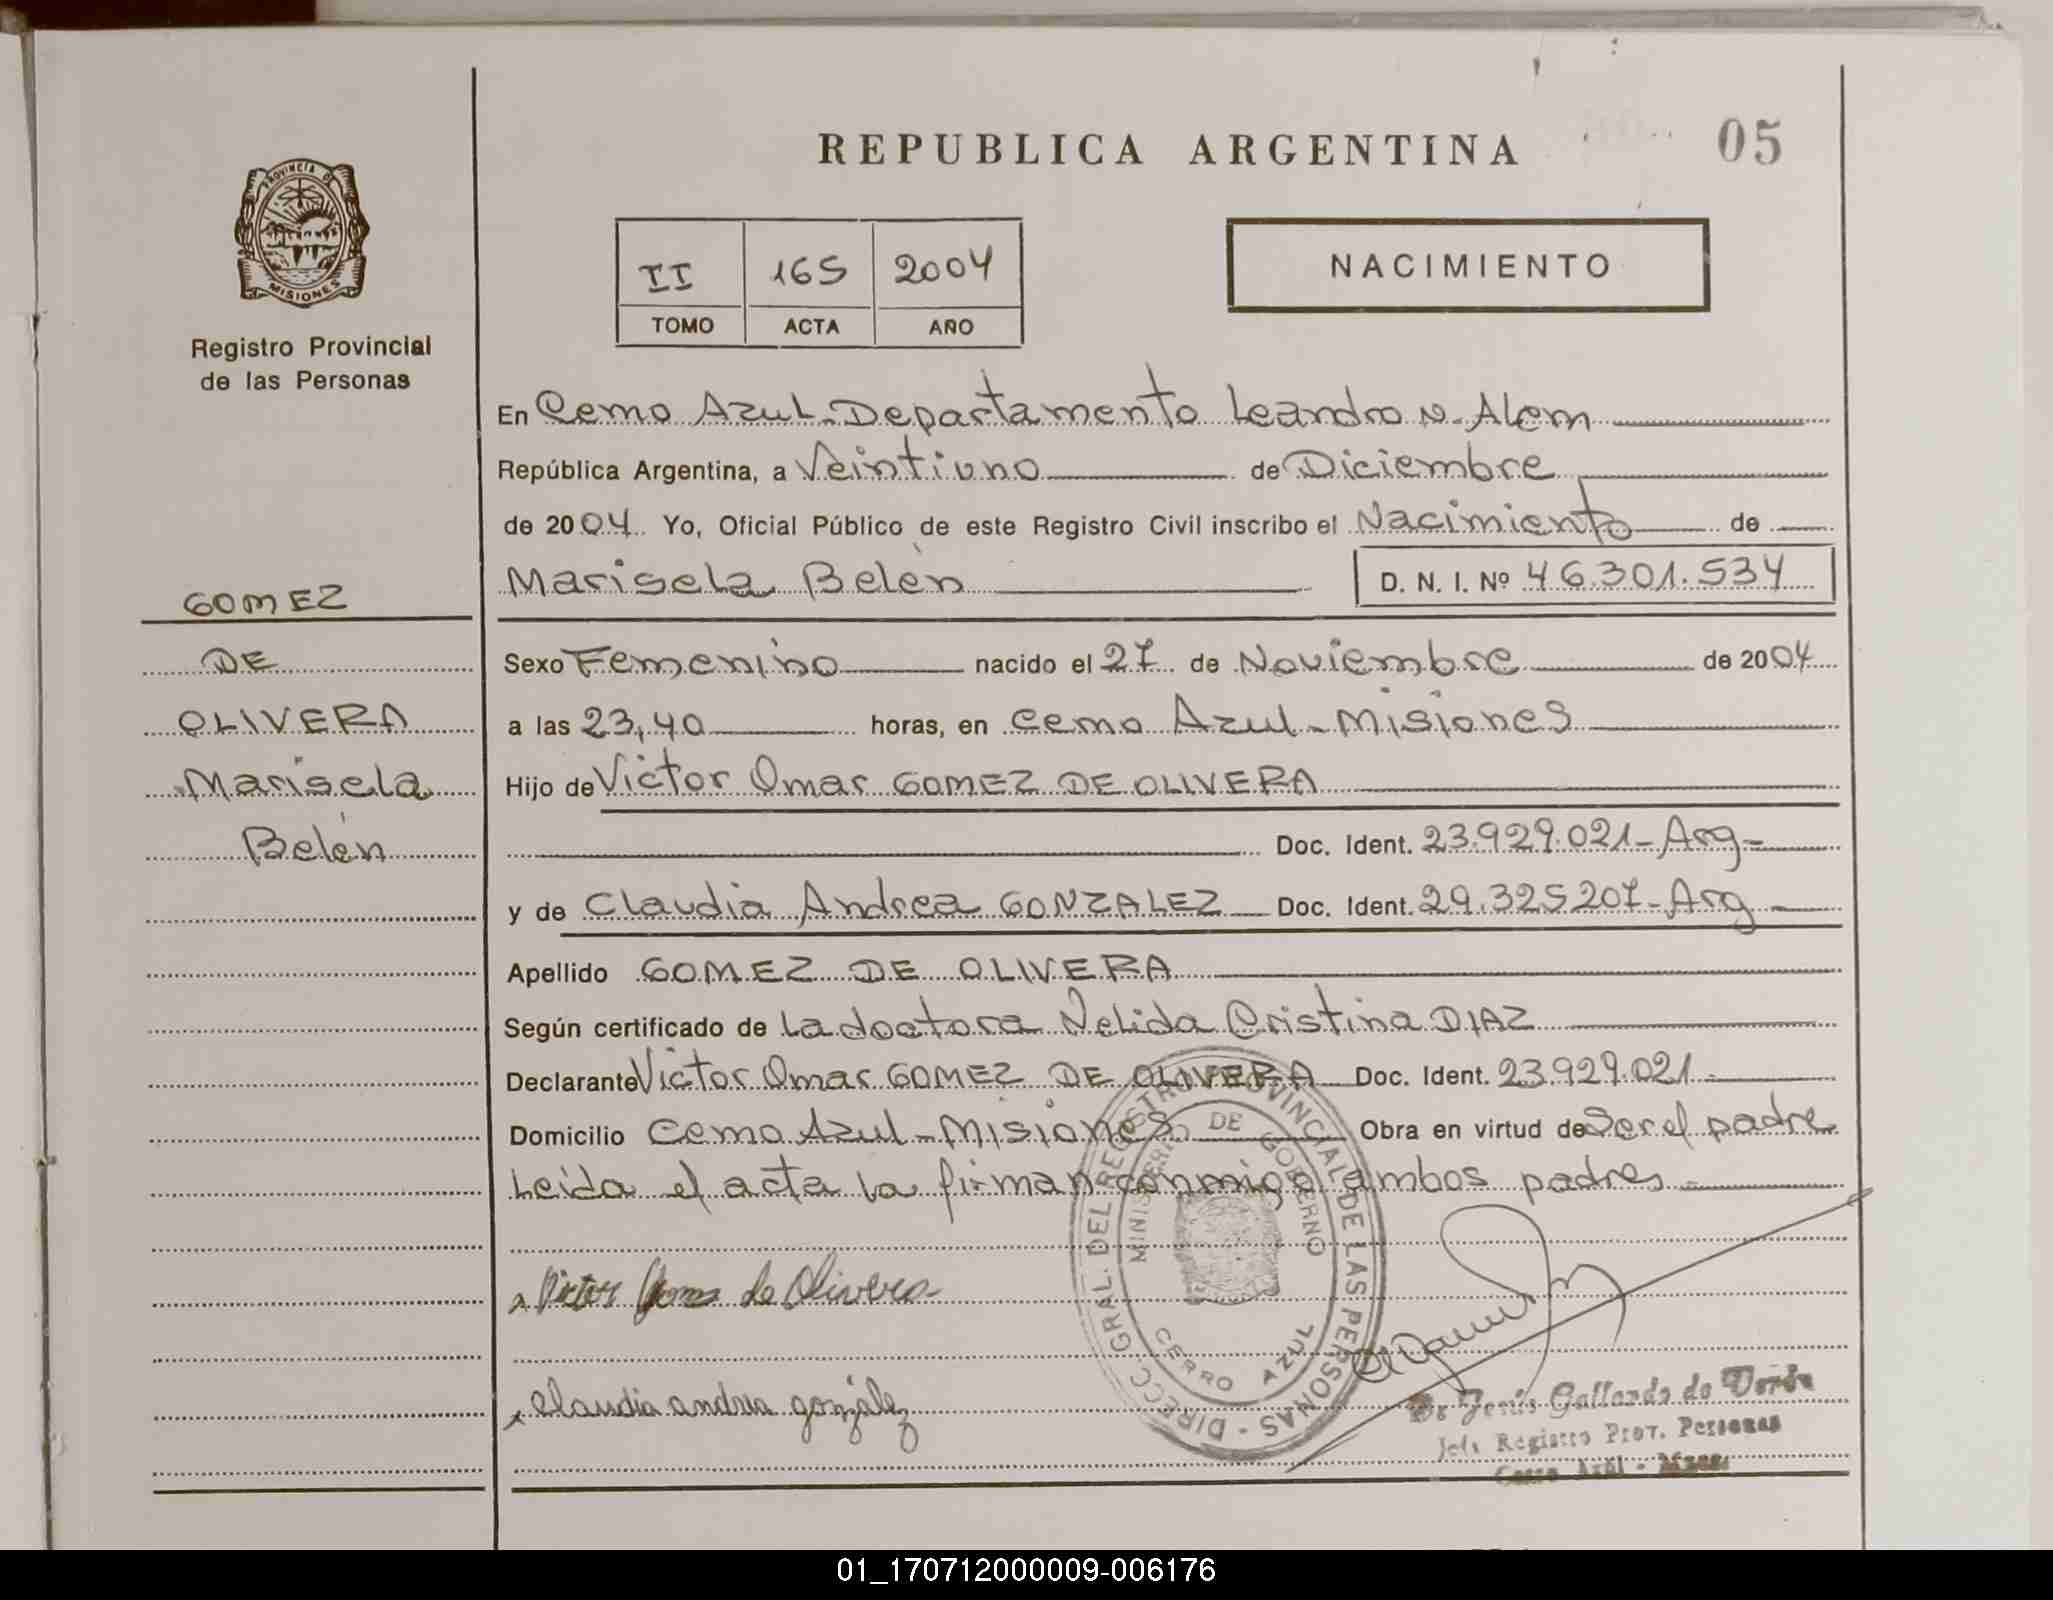 REPUBLICA ARGENTINA
05
PROVINCIA DE
MISIONES
Registro Provincial
de las Personas
II 165 2004
TOMO ACTA AÑO
NACIMIENTO
En Cerro Azul-Departamento Leandro N-Alem
República Argentina, a Veintiuno de Diciembre
de 2004 Yo, Oficial Público de este Registro Civil inscribo el Nacimiento de
Marisela Belén D. N. I. Nº 46.301.534
GOMEZ
DE
OLIVERA
Marisela
Belén
Sexo Femenino nacido el 27 de Noviembre de 2004
a las 23,40 horas, en Cerro Azul-Misiones
Hijo de Victor Omar GOMEZ DE OLIVERA
Doc. Ident. 23.929.021-Arg-
y de Claudia Andrea GONZALEZ Doc. Ident. 29.325207-Arg
Apellido GOMEZ DE OLIVERA
Según certificado de la doctora Nelida Cristina DIAZ
Declarante Victor Omar GOMEZ DE OLIVERA Doc. Ident. 23.929.021
Domicilio Cerro Azul-Misiones Obra en virtud de Ser el padre
Leida el acta la firman conmigo ambos padres
DIRECC. GRAL. DEL REGISTRO PROVINCIAL DE LAS PERSONAS
MINISTERIO DE GOBIERNO
CERRO AZUL
Victor Gomez de Olivera
x claudia andrea gonzález
Jesús Gallardo de
Registro Prov. Personas
Cerro Azul - Mnes.
01_170712000009-006176